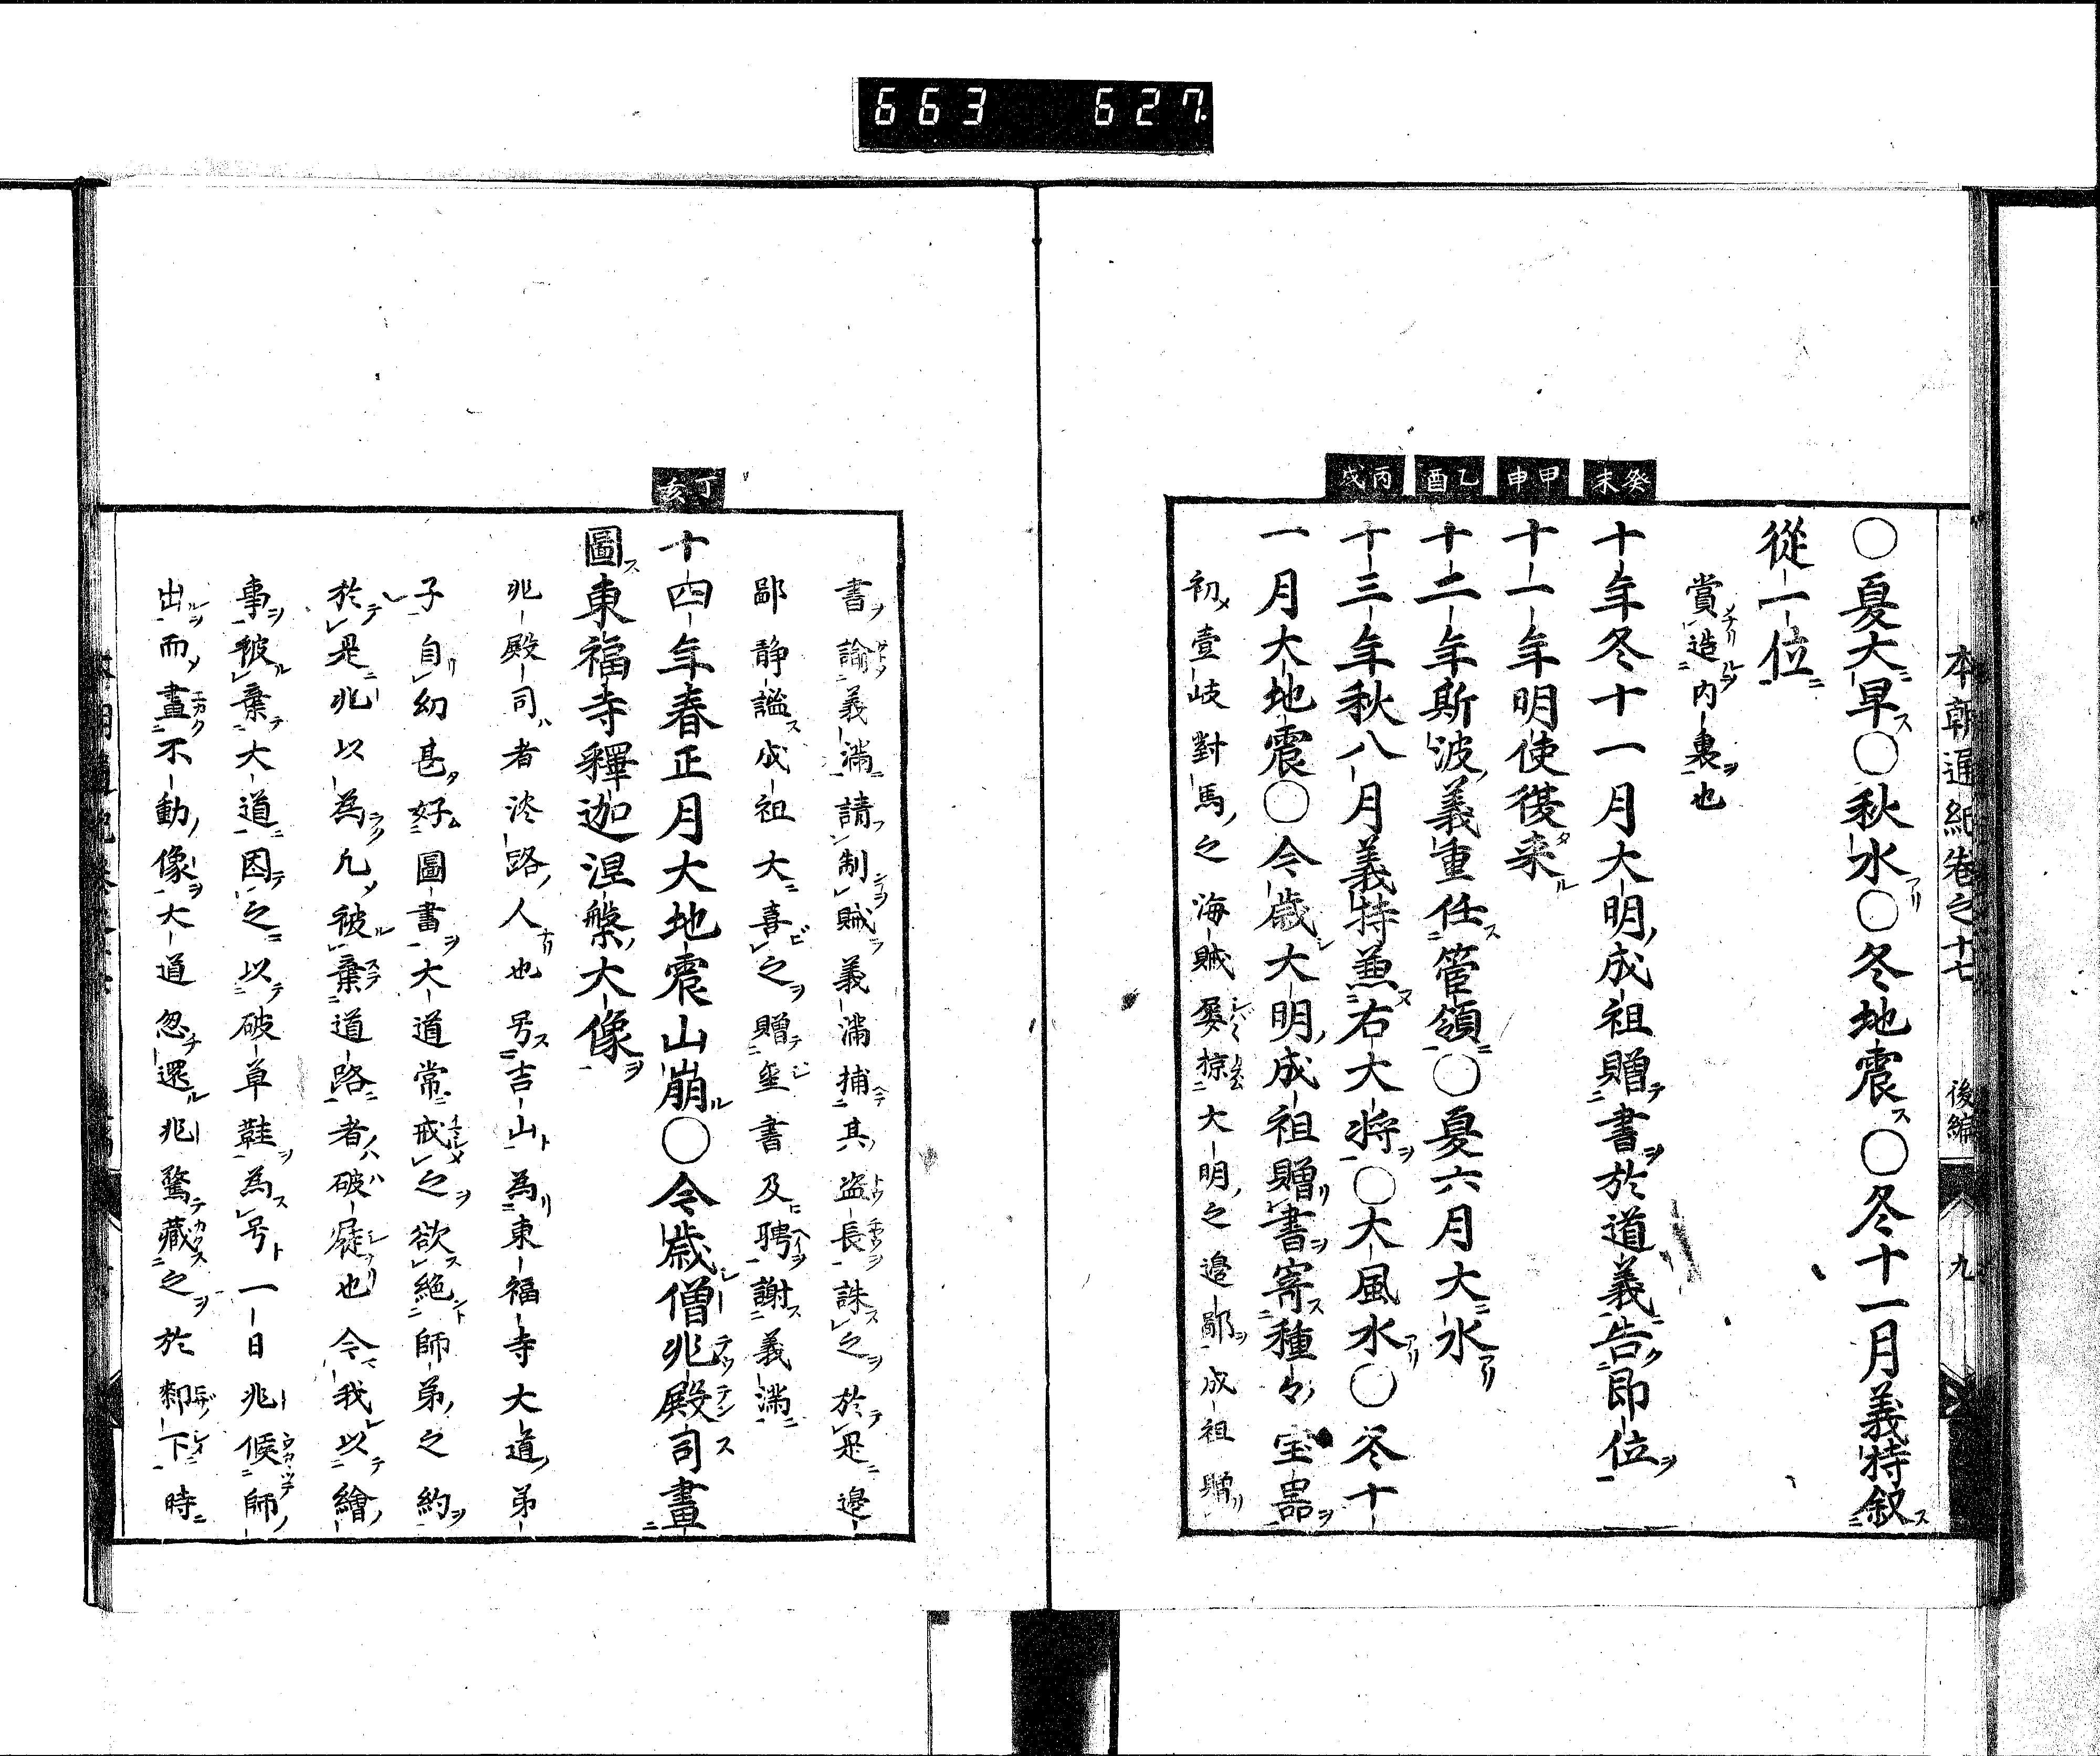 663 627
本朝通紀卷之十七 後編 九
〇夏大旱〇秋水〇冬地震〇冬十一月義持叙
從一位
賞造內裏也
癸未
十年冬十一月大明成祖贈書於道義告即位
甲申
十一年明使復来
乙酉
十二年斯波義重任管領〇夏六月大水
丙戌
十三年秋八月義持兼右大将〇大風水〇冬十
一月大地震〇今歳大明成祖贈書寄種々宝噐
初壹岐對馬之海賊屡掠大明之邉鄙成祖賜
書諭義滿請制賊義滿捕其盗長誅之於是邉
鄙静謐成祖大喜之贈璽書及聘謝義滿
丁亥
十四年春正月大地震山崩〇今歳僧兆殿司畫
圖東福寺釋迦涅槃大像
兆殿司者淡路人也号吉山為東福寺大道弟
子自幻甚好圖畫大道常戒之欲絶師弟之約
於是兆以為凢被棄道路者破屣也今我以繪
事被棄大道因之以破草鞋為号一日兆候師
出而畫不動像大道忽還兆驚藏之於下時